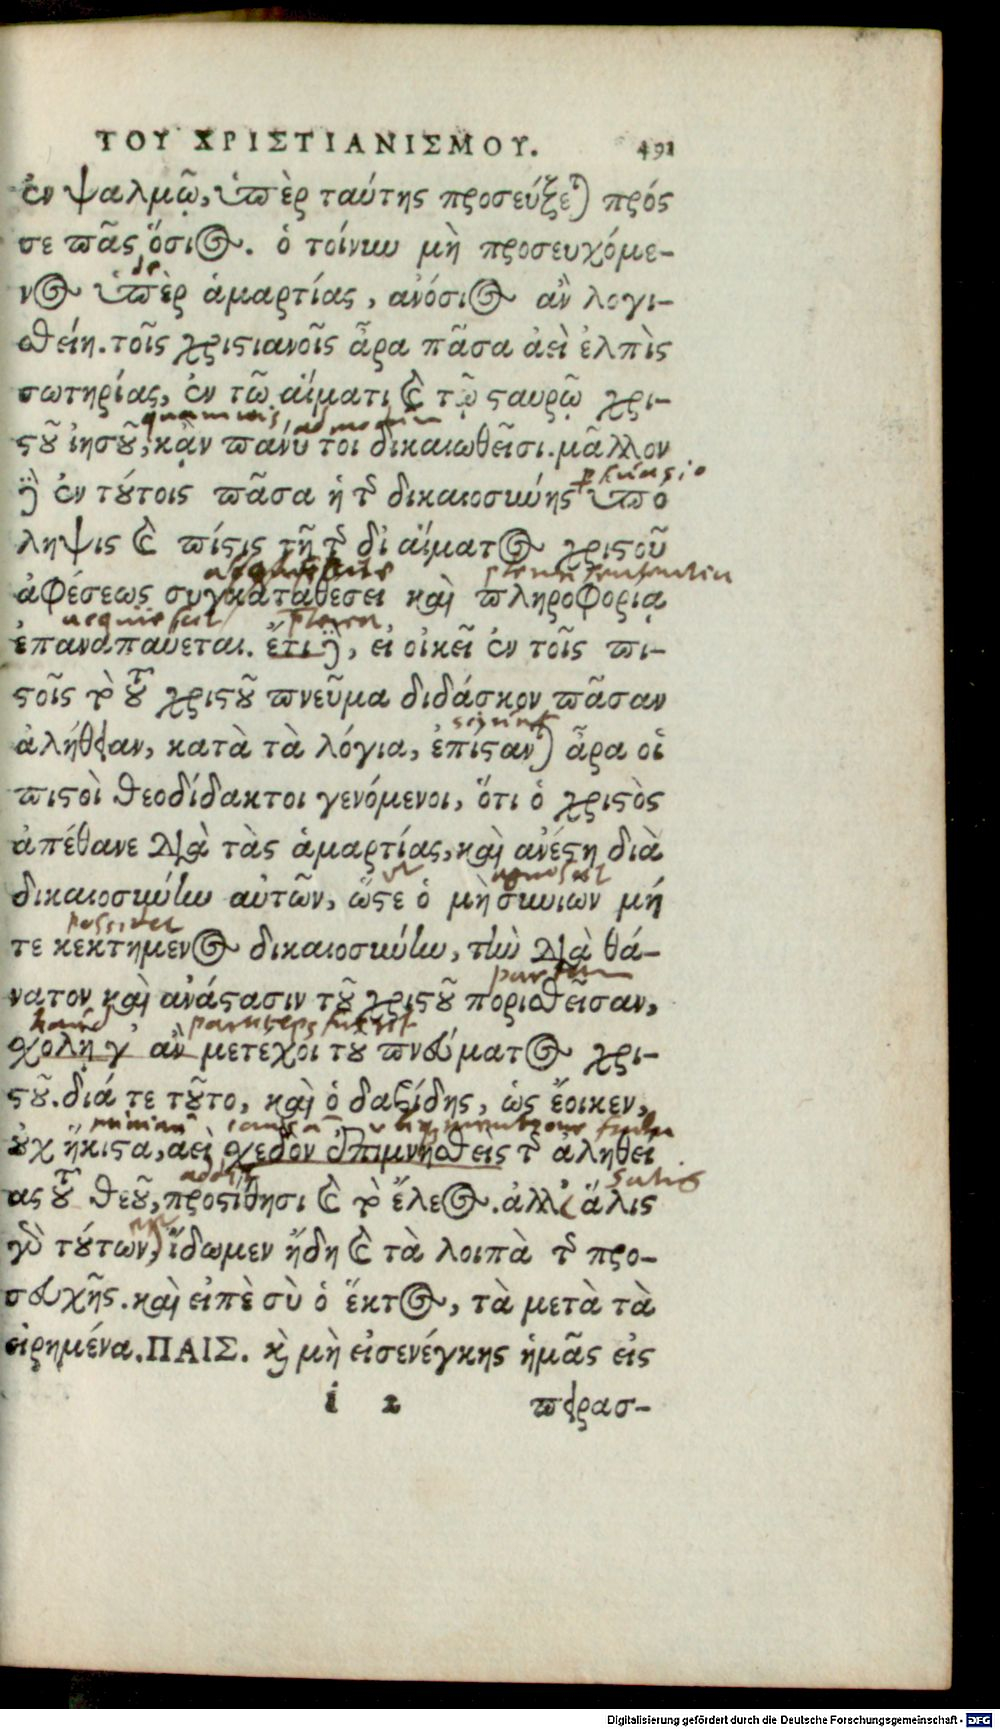 ΤΟΥ ΧΡΙΣΤΙΑΝΙΣΜΟΥ. 491
ἐν ψαλμῷ, ὑπὲρ ταύτης προσεύξεται πρός
σε πᾶς ὅσιος. ὁ τοίνυν μὴ προσευχόμε-
de
νος ὑπὲρ ἁμαρτίας, ἀνόσιος ἂν λογι-
σθείη. τοῖς χριστιανοῖς ἆρα πᾶσα ἀεὶ ἐλπὶς
σωτηρίας, ἐν τῶ αἵματι καὶ τῷ σαυρῷ χρι-
quamvis admodum
στοῦ ἰησοῦ, κᾂν πανύ τοι δικαιωθεῖσι. μᾶλλον
persuasio
δὲ ἐν τούτοις πᾶσα ἡ τῆς δικαιοσκύης ὑπο
ληψις καὶ πίστις τῇ τῆς δι αἵματος χριστοῦ
plena sententia
ἀφέσεως συγκαταθέσει καὶ πληροφορίᾳ
acquiescit
ἐπαναπαύεται. ἔτι δὲ, εἰ οἰκεῖ ἐν τοῖς πι-
στοῖς τὸ τοῦ χριστοῦ πνεῦμα διδάσκον πᾶσαν
sciunt
ἀλήθειαν, κατὰ τὰ λόγια, ἐπίστανται ἆρα οἱ
πιστοὶ θεοδίδακτοι γενόμενοι, ὅτι ὁ χριστὸς
ἀπέθανε διὰ τὰς ἁμαρτίας, καὶ ἀνέστη διὰ
δικαιοσύνην αὐτῶν, ὥστε ὁ μὴ συνιων μή
possidet
τε κεκτημενος δικαιοσύνην, τὴν διὰ θά-
partam
νατον καὶ ἀνάστασιν τοῦ χριστοῦ πορισθεῖσαν,
particeps fuerit
σχολῇ γ' ἂν μετεχοι του πνεύματος χρι-
στοῦ. διά τε τοῦτο, καὶ ὁ δαβίδης, ὡς ἔοικεν,
οὐχ ἥκιστα, αεὶ σχεδὸν ἐπιμνησθεὶς τῆς ἀληθεί
addit satis
ας τοῦ θεοῦ, προστίθησι καὶ τὸ ἔλεος. ἀλλ' ἅλις
γὰρ τούτων, ἴδωμεν ἤδη καὶ τὰ λοιπὰ τῆς προ-
σευχῆς. καὶ εἰπὲ σὺ ὁ ἕκτος, τὰ μετὰ τὰ
εἰρημένα. ΠΑΙΣ. καὶ μὴ εἰσενέγκης ἡμᾶς εἰς
i 2 πειρασ-
Digitalisierung gefördert durch die Deutsche Forschungsgemeinschaft - DFG